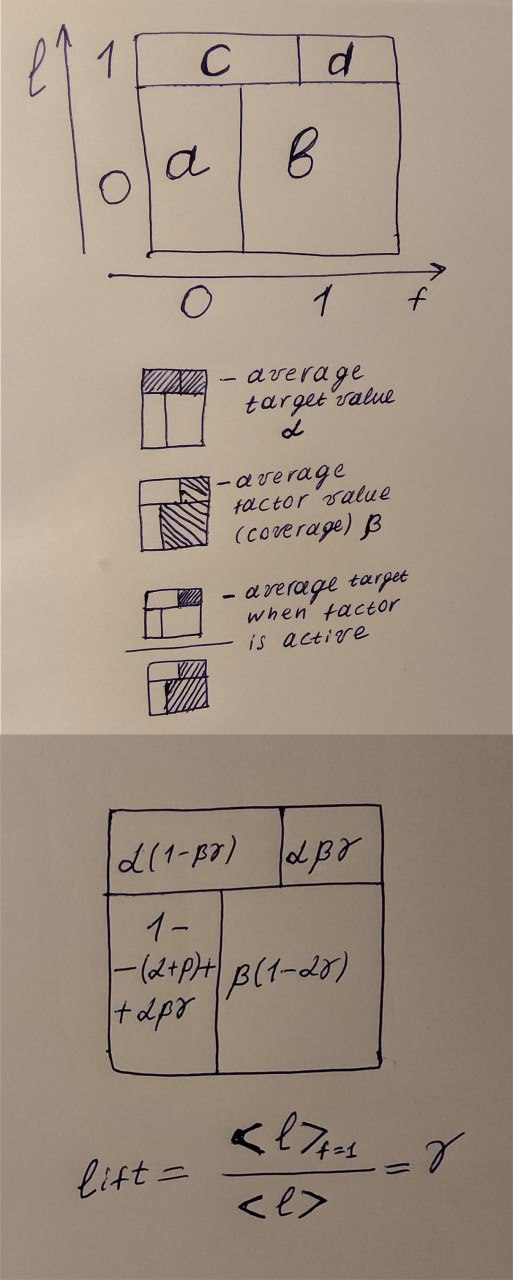 l 1 c d
0 a b
0 1 f
- average
target value
α
- average
factor value
(coverage) β
- average target
when factor
is active
α(1-βγ) αβγ
1-
-(α+β)+
+αβγ
β(1-αγ)
lift = <l>f=1 / <l> = γ